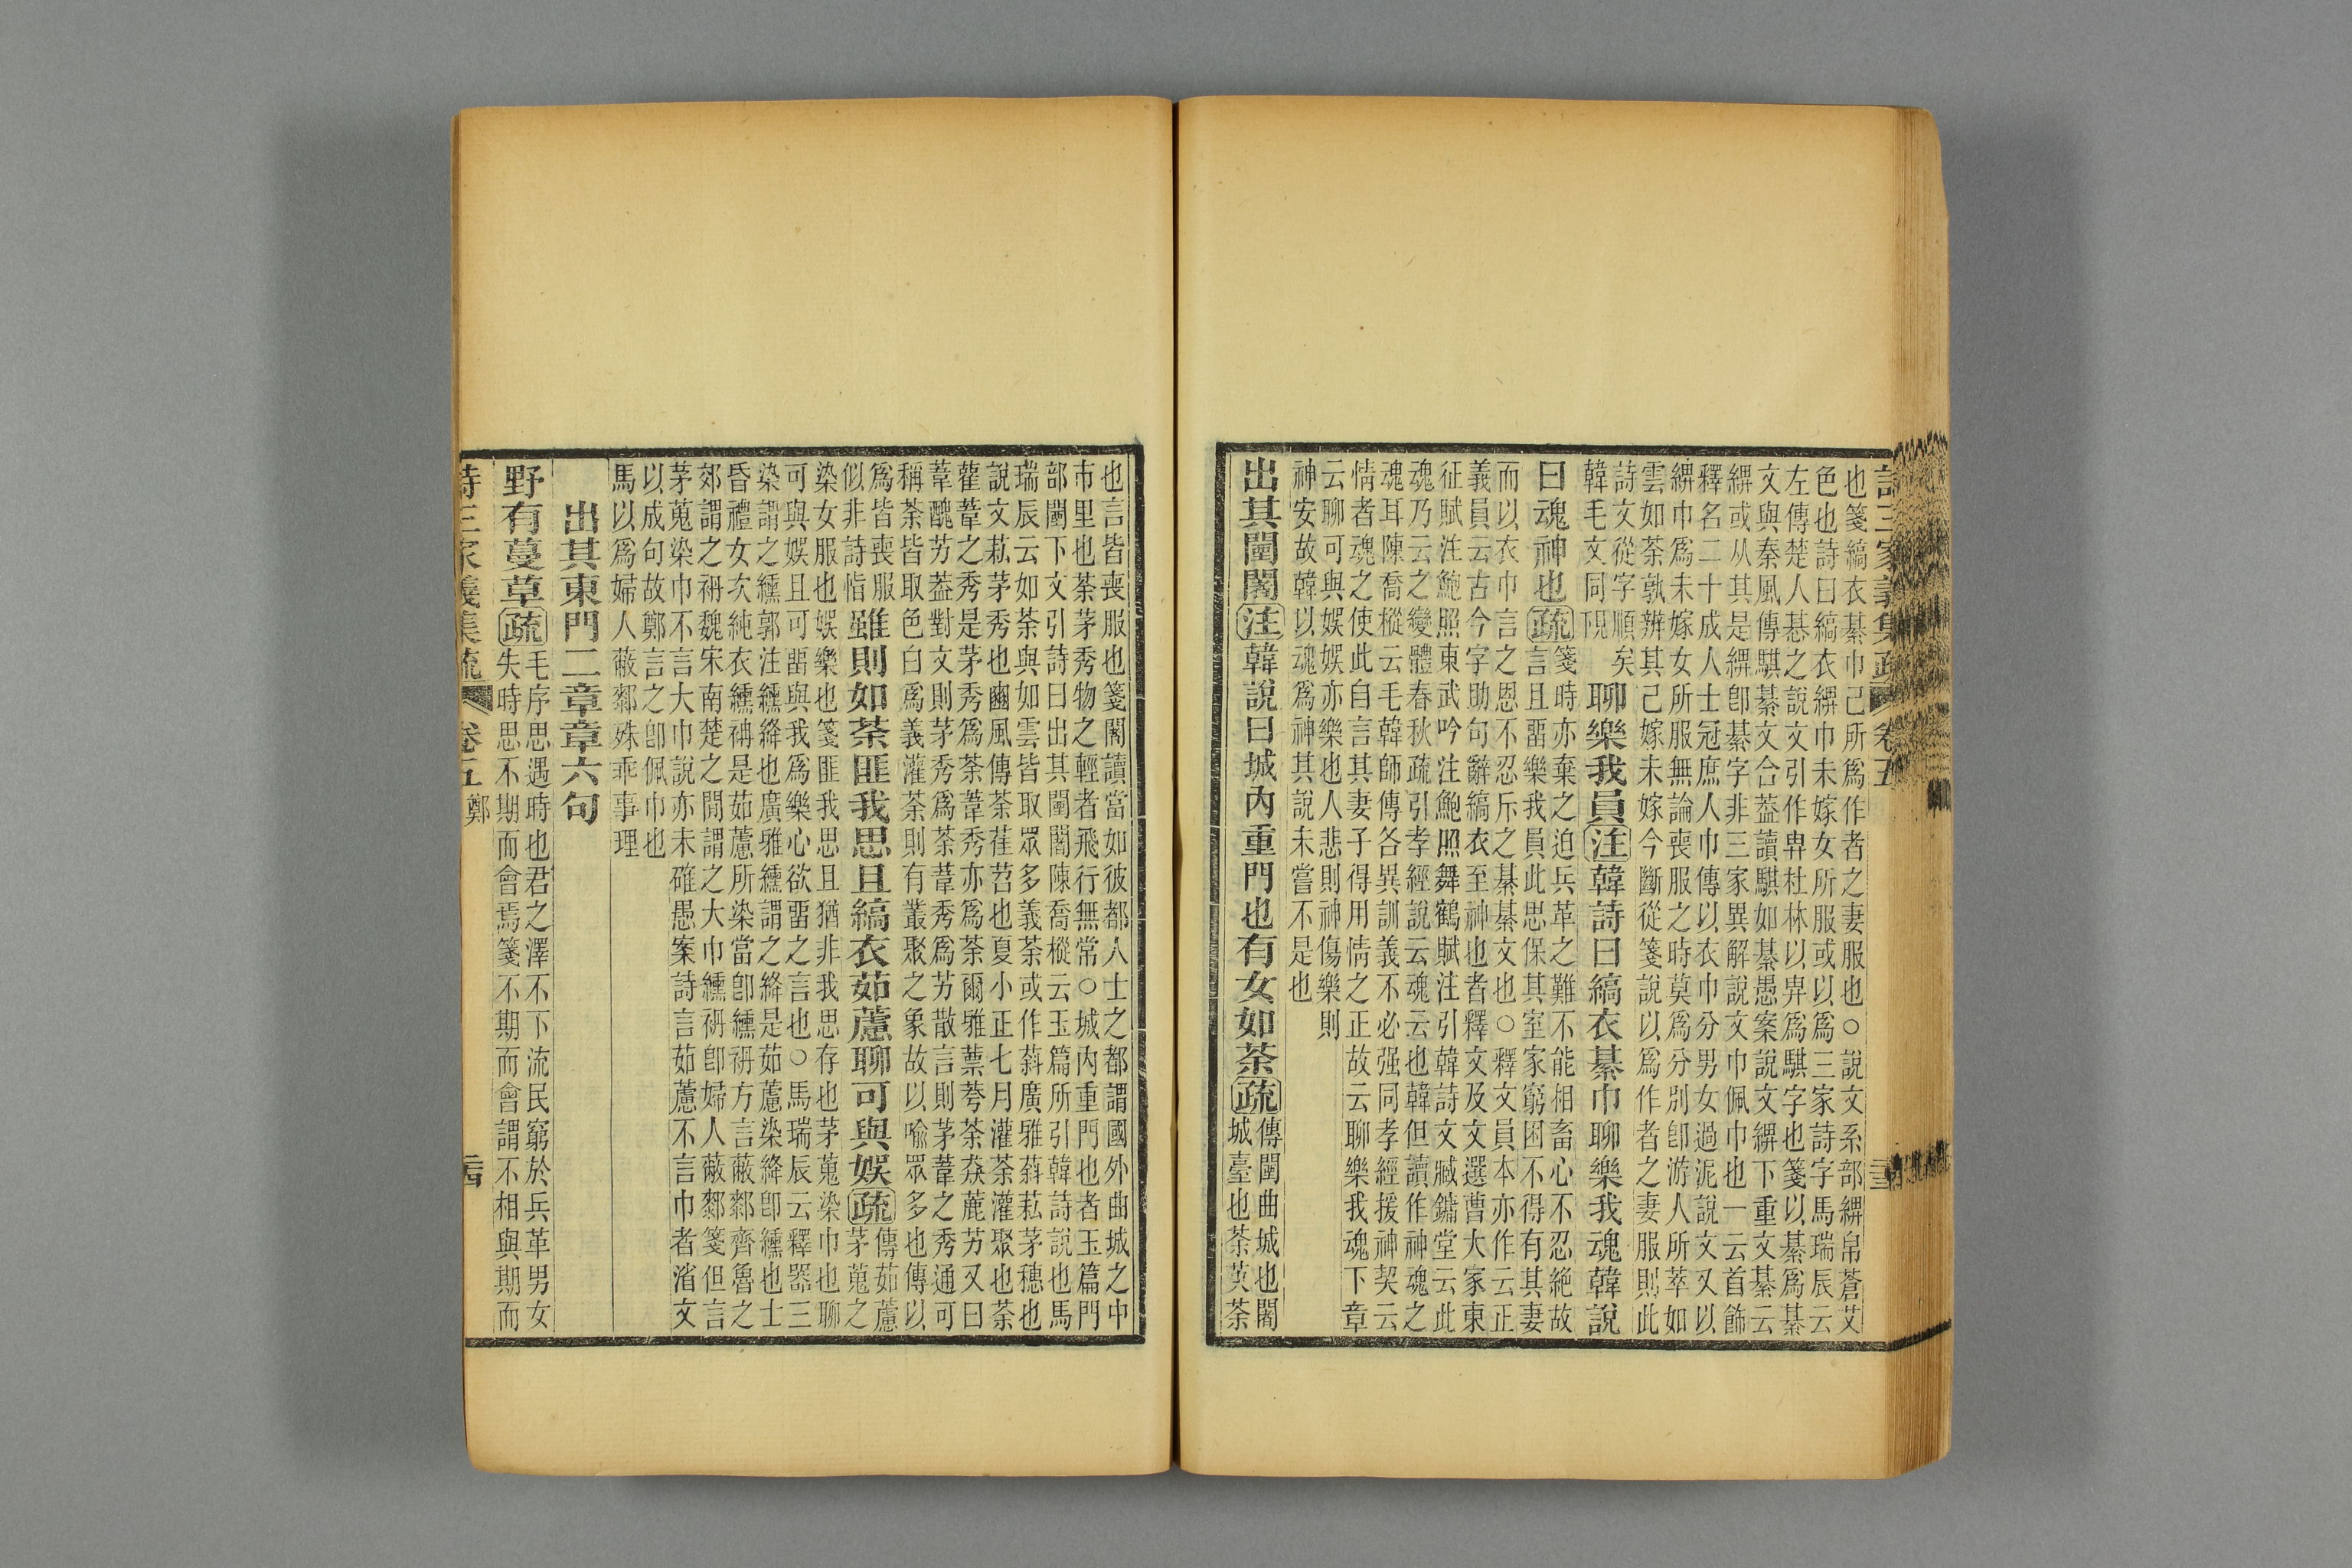 詩三家義集疏 卷五
也箋縞衣綦巾己所爲作者之妻服也○說文系部綥帛蒼艾
色也詩曰縞衣綥巾未嫁女所服或以爲三家詩字馬瑞辰云
左傳楚人惎之說文引作𢍆杜林以𢍆爲騏字也箋以綦爲綦
文與秦風傳騏綦文合葢讀騏如綦愚案說文綥下重文綦云
綥或从其是綥卽綦字非三家異解說文巾佩巾也一云首飾
釋名二十成人士冠庶人巾傳以衣巾分男女過泥說文又以
綥巾爲未嫁女所服無論喪服之時莫爲分別卽游人所萃如
雲如荼孰辨其己嫁未嫁今斷從箋說以爲作者之妻服則此
詩文從字順矣
韓毛文同覑
聊樂我員注韓詩曰縞衣綦巾聊樂我魂韓說
曰魂神也疏
箋時亦棄之迫兵革之難不能相畜心不忍絶故
言且畱樂我員此思保其室家窮困不得有其妻
而以衣巾言之恩不忍斥之綦綦文也○釋文員本亦作云正
義員云古今字助句辭縞衣至神也者釋文及文選曹大家東
征賦注鮑照東武吟注鮑照舞鶴賦注引韓詩文臧鏞堂云此
魂乃云之變體春秋疏引孝經說云魂云也韓但讀作神魂之
魂耳陳喬樅云毛韓師傳各異訓義不必强同孝經援神契云
情者魂之使此自言其妻子得用情之正故云聊樂我魂下章
云聊可與娛娛亦樂也人悲則神傷樂則
神安故韓以魂爲神其說未嘗不是也
出其闉闍注韓說曰城內重門也有女如荼疏
傳闉曲城也闍
城臺也荼英荼
也言皆喪服也箋闍讀當如彼都人士之都謂國外曲城之中
市里也荼茅秀物之輕者飛行無常○城內重門也者玉篇門
部闉下文引詩曰出其闉闍陳喬樅云玉篇所引韓詩說也馬
瑞辰云如荼與如雲皆取眾多義荼或作蒤廣雅蒤菾茅穗也
說文菾茅秀也豳風傳荼萑苕也夏小正七月灌荼灌聚也荼
雚葦之秀是茅秀爲荼葦秀亦爲荼爾雅蔈荂荼猋藨艻又曰
葦醜艻葢對文則茅秀爲荼葦秀爲艻散言則茅葦之秀通可
稱荼皆取色白爲義灌荼則有叢聚之象故以喩眾多也傳以
爲皆喪服
似非詩恉
雖則如荼匪我思且縞衣茹藘聊可與娛疏
傳茹藘
茅蒐之
染女服也娛樂也箋匪我思且猶非我思存也茅蒐染巾也聊
可與娛且可畱與我爲樂心欲畱之言也○馬瑞辰云釋器三
染謂之纁郭注纁絳也廣雅纁謂之絳是茹藘染絳卽纁也士
昏禮女次純衣纁袡是茹藘所染當卽纁袡方言蔽鄈齊魯之
郊謂之袡魏宋南楚之閒謂之大巾纁袡卽婦人蔽鄈箋但言
茅蒐染巾不言大巾說亦未確愚案詩言茹藘不言巾者渻文
以成句故鄭言之卽佩巾也
馬以爲婦人蔽鄈殊乖事理
出其東門二章章六句
野有蔓草疏
毛序思遇時也君之澤不下流民窮於兵革男女
失時思不期而會焉箋不期而會謂不相與期而
詩三家義集疏 卷五 鄭